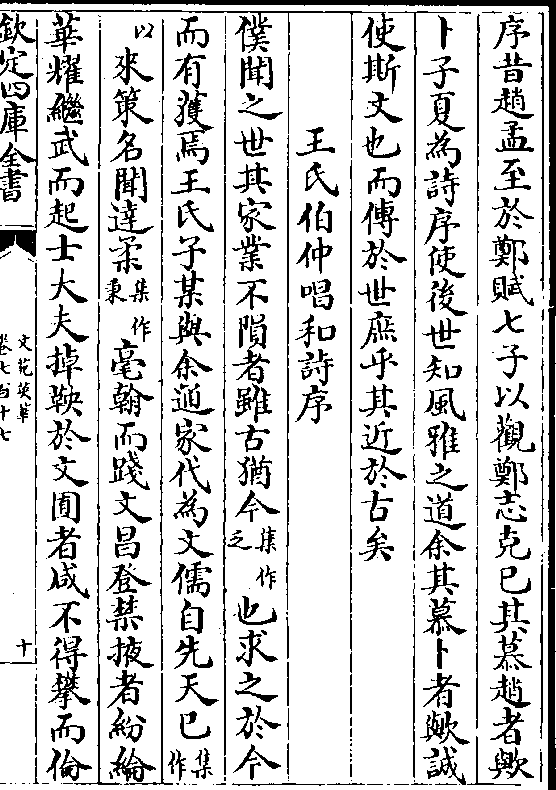 序昔趙孟至於鄭賦七子以觀鄭志克已其慕趙者歟
卜子夏為詩序使後世知風雅之道余其慕卜者歟誠
使斯文也而傳於世庶乎其近於古矣
王氏伯仲唱和詩序
僕聞之世其家業不隕者雖古猶今集作之也求之於今
而有獲焉王氏子某與余逥家代為文儒自先天已集作
以來策名聞達柔集作秉毫翰而踐文昌登禁掖者紛綸
華耀繼武而起士大夫掉鞅於文囿者咸不得攀而倫
欽定四庫全書
文苑英華
卷七百十七
十